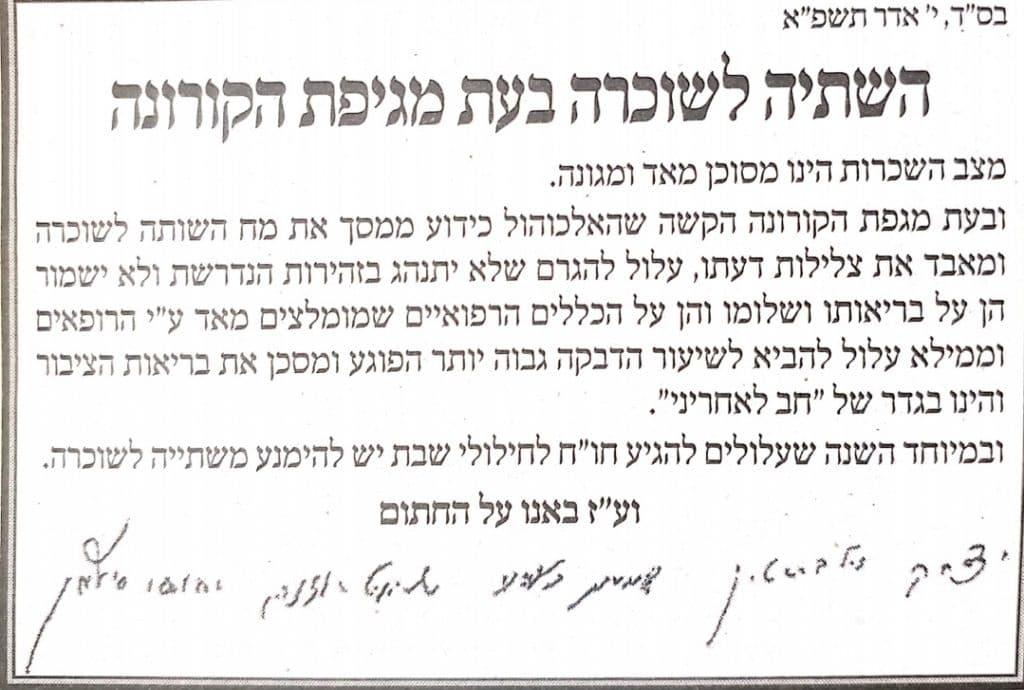 בס"ד, י' אדר תשפ"א
השתיה לשוכרה בעת מגיפת הקורונה
מצב השכרות הינו מסוכן מאד ומגונה.
ובעת מגפת הקורונה הקשה שהאלכוהול כידוע ממסך את מח השותה לשוכרה
ומאבד את צלילות דעתו, עלול להגרם שלא יתנהג בזהירות הנדרשת ולא ישמור
הן על בריאותו ושלומו והן על הכללים הרפואיים שמומלצים מאד ע"י הרופאים
וממילא עלול להביא לשיעור הדבקה גבוה יותר הפוגע ומסכן את בריאות הציבור
והינו בגדר של "חב לאחריני".
ובמיוחד השנה שעלולים להגיע חו"ח לחילולי שבת יש להימנע משתייה לשוכרה.
וע"ז באנו על החתום
יצחק זילברשטיין